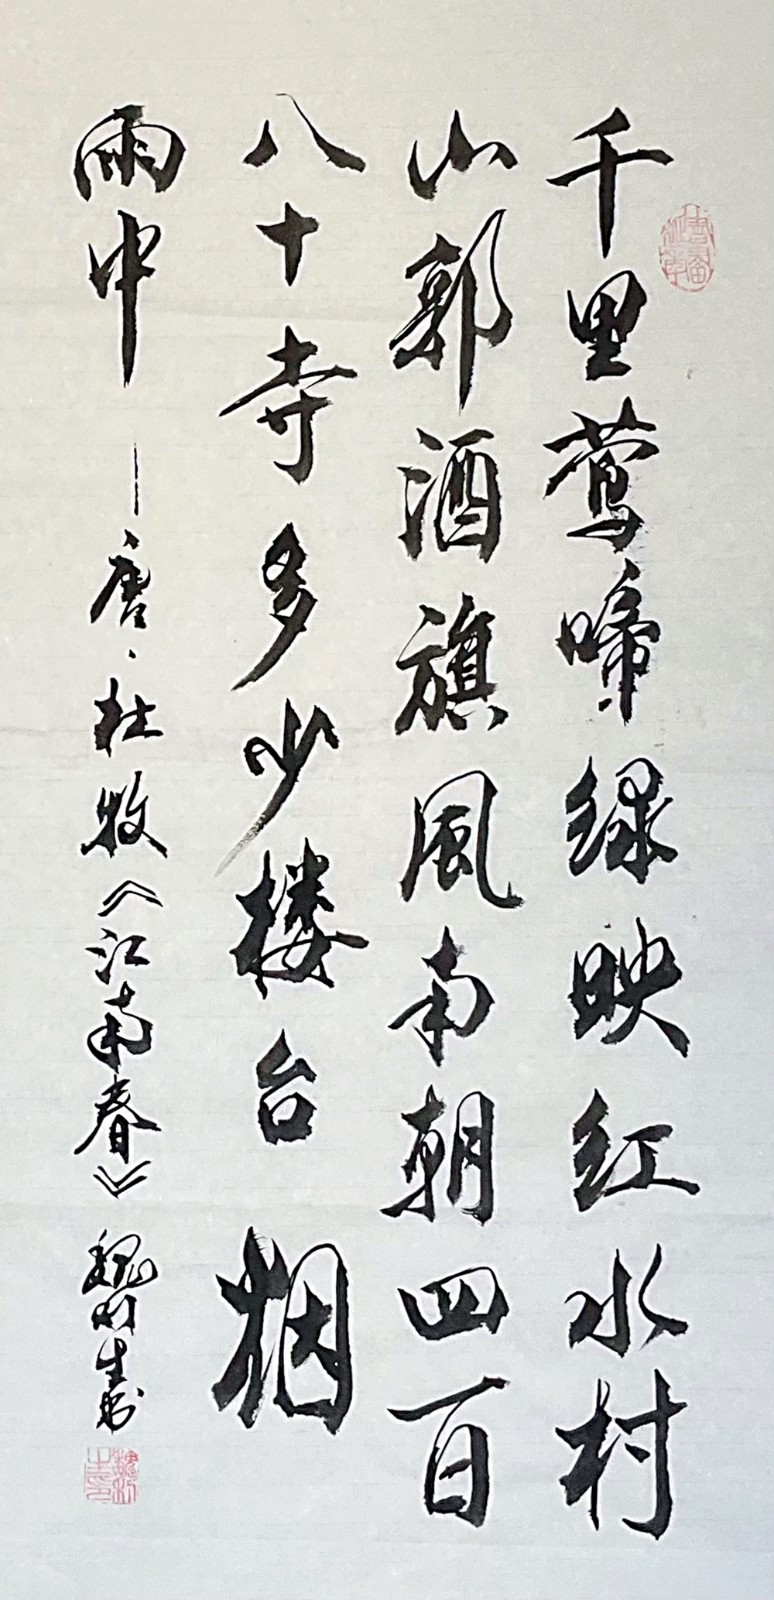 千里莺啼绿映红水村
山郭酒旗風南朝四百
八十寺多少楼台烟
雨中——唐·杜牧《江南春》魏生书